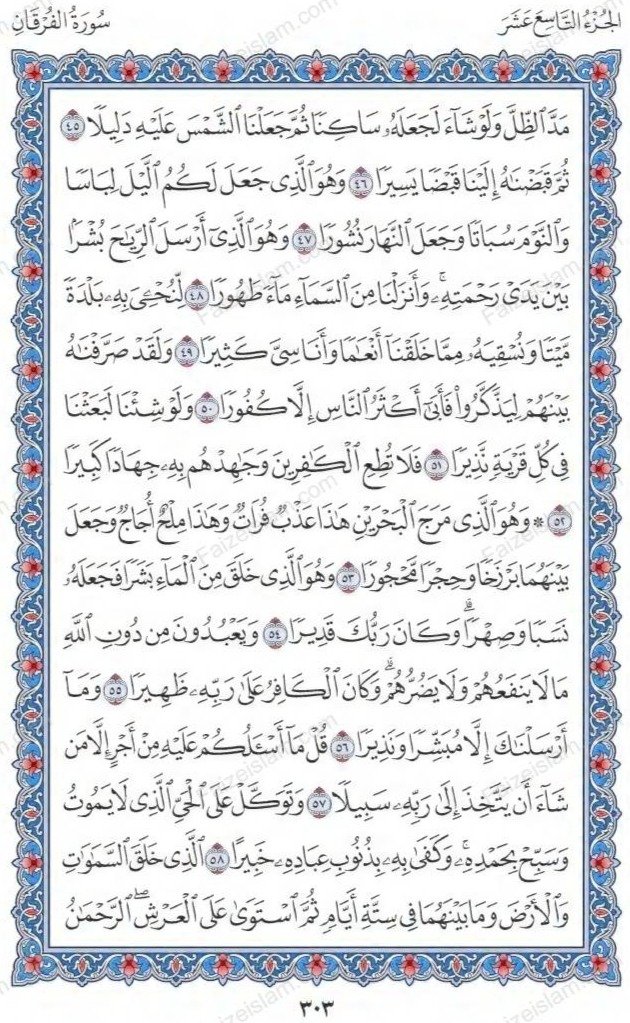 الجُزْءُ التَّاسِعَ عَشَرَ
سُورَةُ الفُرْقَانِ
مَدَّ ٱلظِّلَّ وَلَوْ شَآءَ لَجَعَلَهُۥ سَاكِنًا ثُمَّ جَعَلْنَا ٱلشَّمْسَ عَلَيْهِ دَلِيلًا ٤٥
ثُمَّ قَبَضْنَٰهُ إِلَيْنَا قَبْضًا يَسِيرًا ٤٦ وَهُوَ ٱلَّذِى جَعَلَ لَكُمُ ٱلَّيْلَ لِبَاسًا
وَٱلنَّوْمَ سُبَاتًا وَجَعَلَ ٱلنَّهَارَ نُشُورًا ٤٧ وَهُوَ ٱلَّذِىٓ أَرْسَلَ ٱلرِّيَٰحَ بُشْرًۢا
بَيْنَ يَدَىْ رَحْمَتِهِۦۚ وَأَنزَلْنَا مِنَ ٱلسَّمَآءِ مَآءً طَهُورًا ٤٨ لِّنُحْـِۧىَ بِهِۦ بَلْدَةً
مَّيْتًا وَنُسْقِيَهُۥ مِمَّا خَلَقْنَآ أَنْعَٰمًا وَأَنَاسِىَّ كَثِيرًا ٤٩ وَلَقَدْ صَرَّفْنَٰهُ
بَيْنَهُمْ لِيَذَّكَّرُوا۟ فَأَبَىٰٓ أَكْثَرُ ٱلنَّاسِ إِلَّا كُفُورًا ٥٠ وَلَوْ شِئْنَا لَبَعَثْنَا
فِى كُلِّ قَرْيَةٍ نَّذِيرًا ٥١ فَلَا تُطِعِ ٱلْكَٰفِرِينَ وَجَٰهِدْهُم بِهِۦ جِهَادًا كَبِيرًا
٥٢ * وَهُوَ ٱلَّذِى مَرَجَ ٱلْبَحْرَيْنِ هَٰذَا عَذْبٌ فُرَاتٌ وَهَٰذَا مِلْحٌ أُجَاجٌ وَجَعَلَ
بَيْنَهُمَا بَرْزَخًا وَحِجْرًا مَّحْجُورًا ٥٣ وَهُوَ ٱلَّذِى خَلَقَ مِنَ ٱلْمَآءِ بَشَرًا فَجَعَلَهُۥ
نَسَبًا وَصِهْرًاۗ وَكَانَ رَبُّكَ قَدِيرًا ٥٤ وَيَعْبُدُونَ مِن دُونِ ٱللَّهِ
مَا لَا يَنفَعُهُمْ وَلَا يَضُرُّهُمْۗ وَكَانَ ٱلْكَافِرُ عَلَىٰ رَبِّهِۦ ظَهِيرًا ٥٥ وَمَآ
أَرْسَلْنَٰكَ إِلَّا مُبَشِّرًا وَنَذِيرًا ٥٦ قُلْ مَآ أَسْـَٔلُكُمْ عَلَيْهِ مِنْ أَجْرٍ إِلَّا مَن
شَآءَ أَن يَتَّخِذَ إِلَىٰ رَبِّهِۦ سَبِيلًا ٥٧ وَتَوَكَّلْ عَلَى ٱلْحَىِّ ٱلَّذِى لَا يَمُوتُ
وَسَبِّحْ بِحَمْدِهِۦۚ وَكَفَىٰ بِهِۦ بِذُنُوبِ عِبَادِهِۦ خَبِيرًا ٥٨ ٱلَّذِى خَلَقَ ٱلسَّمَٰوَٰتِ
وَٱلْأَرْضَ وَمَا بَيْنَهُمَا فِى سِتَّةِ أَيَّامٍ ثُمَّ ٱسْتَوَىٰ عَلَى ٱلْعَرْشِۖ ٱلرَّحْمَٰنُ
٣٠٣
Faizeislam.com